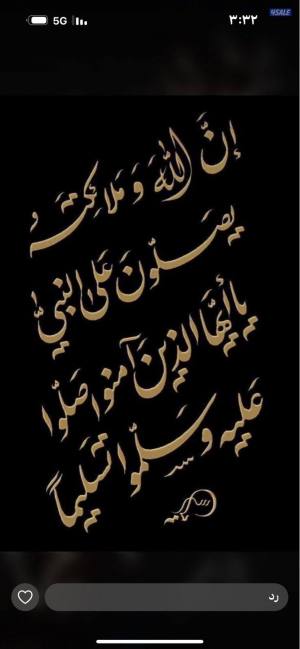 5G
٣:٣٢
4SALE
إنَّ اللهَ وَمَلائِكَتَهُ
يُصَلّونَ عَلى النَبيِّ
يا أيّها الذينَ آمنوا صَلّوا
عَليهِ وسَلّموا تَسليماً
رد